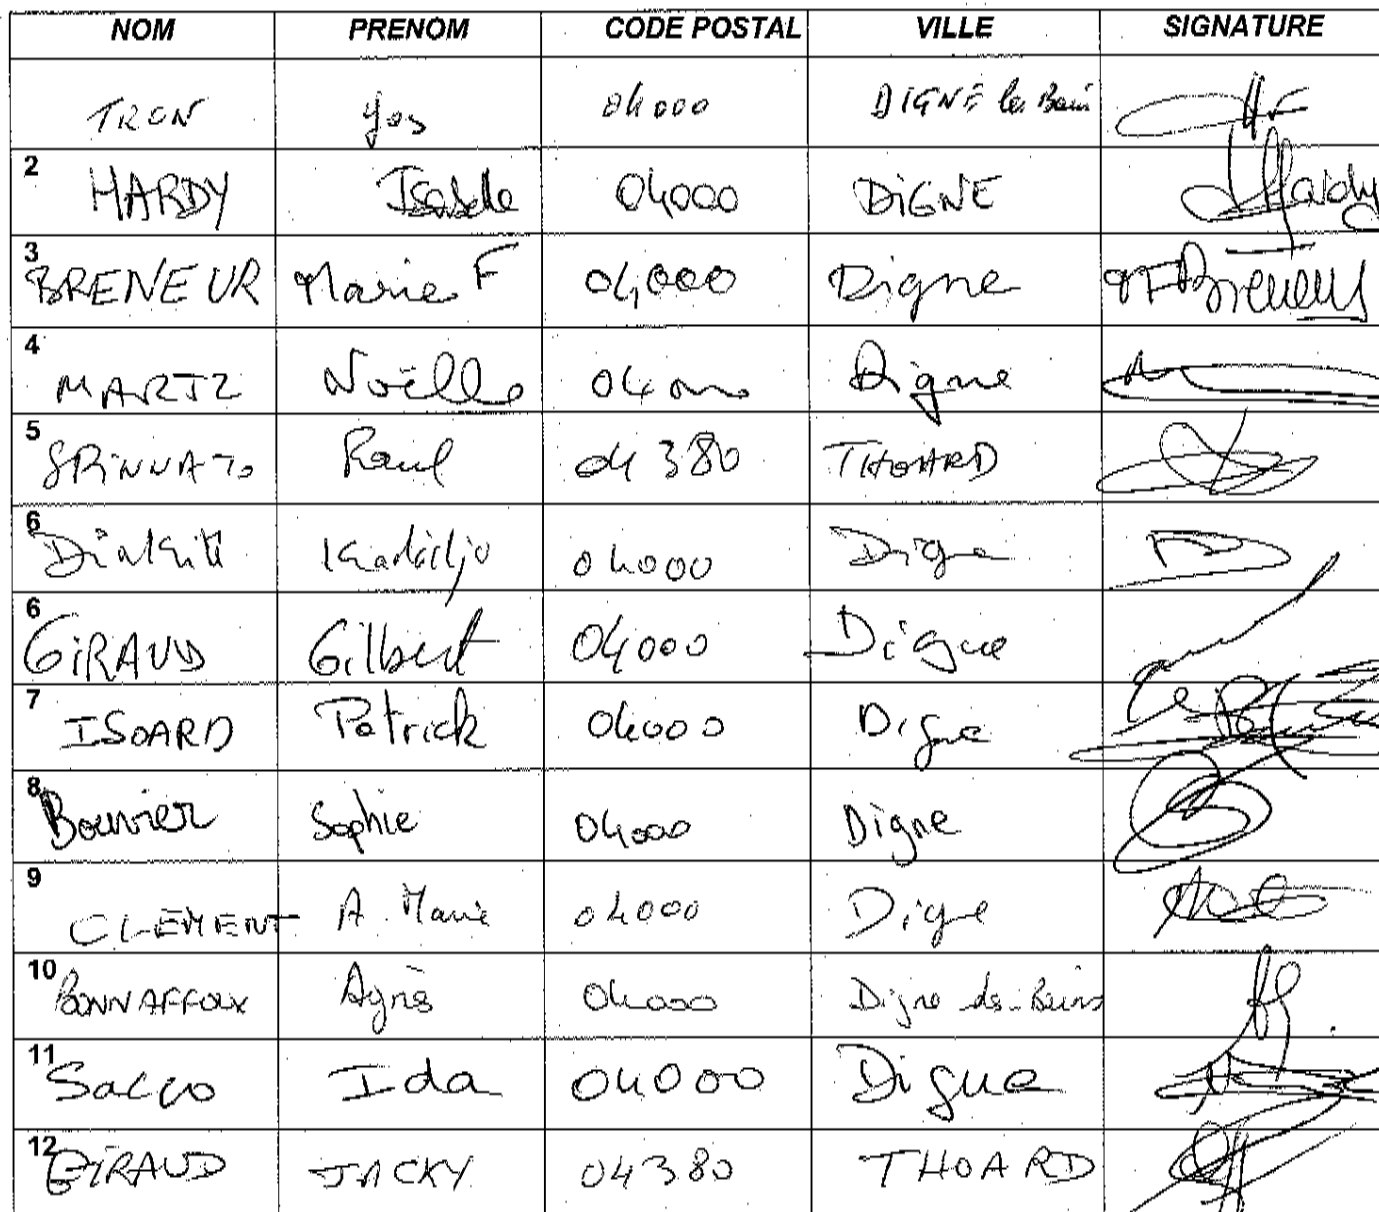 NOM PRENOM CODE POSTAL VILLE SIGNATURE
TRON 04000 DIGNE les Bains
2 HARDY Isabelle 04000 DIGNE Hardy
3 BRENEUR Marie F 04000 Digne MF Breneur
4 MARTZ Noëlle 04000 Digne
5 Raoul 04380 THOARD
6 04000 Digne
6 GIRAUD Gilbert 04000 Digne
7 ISOARD Patrick 04000 Digne
8 Bouvier Sophie 04000 Digne
9 CLEMENT A. Marie 04000 Digne
10 BONNAFFOUX Agnès 04000 Digne-les-Bains
11 Sacco Ida 04000 Digne
12 GIRAUD JACKY 04380 THOARD